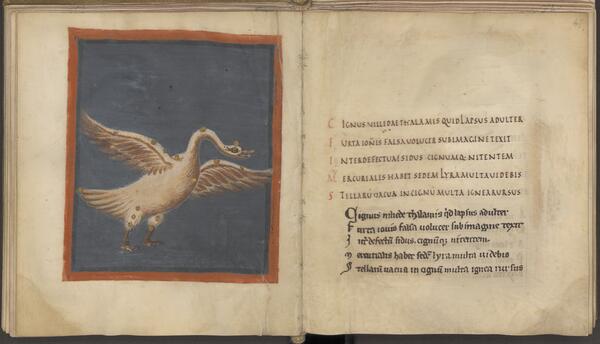 CIGNUS NILLEDAE THALAMIS QUID LAPSUS ADULTER
FURTA IOUIS FALSA UOLUCER SUB IMAGINE TEXIT
INTER DEFECTUM SIDUS CIGNUMQ; NITENTEM
MERCURIALIS HABET SEDEM LYRA MULTA UIDEBIS
STELLARU UACUA IN CIGNU MULTA IGNEA RURSUS
Cignus nilede thalamis qd lapsus adulter
Furta iouis falsa uolucer sub imagine texit
Int defectu sidus cignuq; nitentem
Mercurialis habet sede lyra multa uidebis
Stellaru uacua in cignu multa ignea rursus